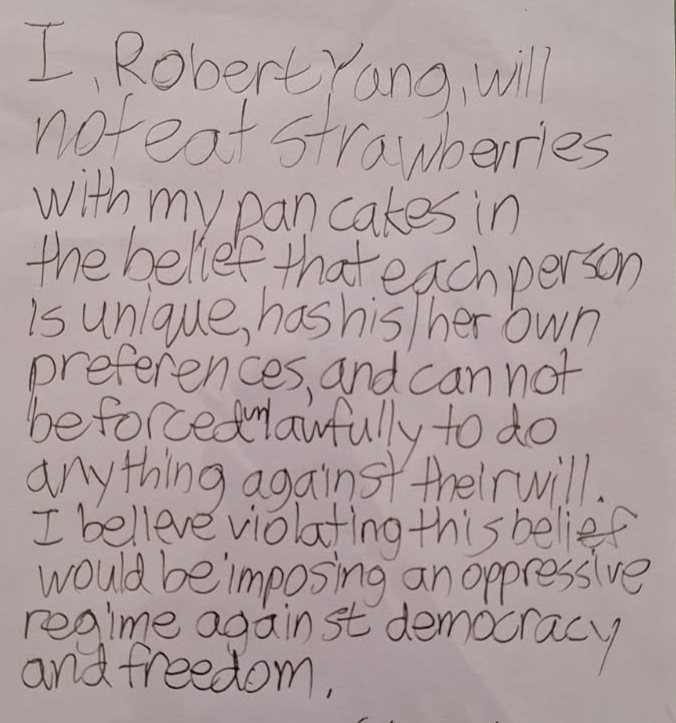 I, Robert Yang, will
not eat strawberries
with my pancakes in
the belief that each person
is unique, has his/her own
preferences, and can not
be forced unlawfully to do
anything against their will.
I believe violating this belief
would be imposing an oppressive
regime against democracy
and freedom.